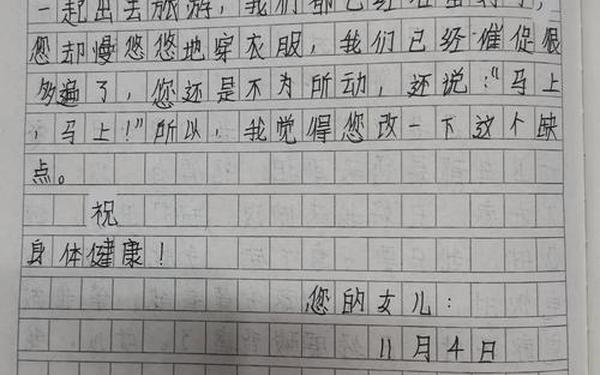 一起出去旅游，我们都已经准备好了，
您却慢悠悠地穿衣服，我们已经催促很
多遍了，您还是不为所动，还说："马上
，马上！"所以，我觉得您改一下这个缺
点。
祝
身体健康！
您的女儿：
11月4日